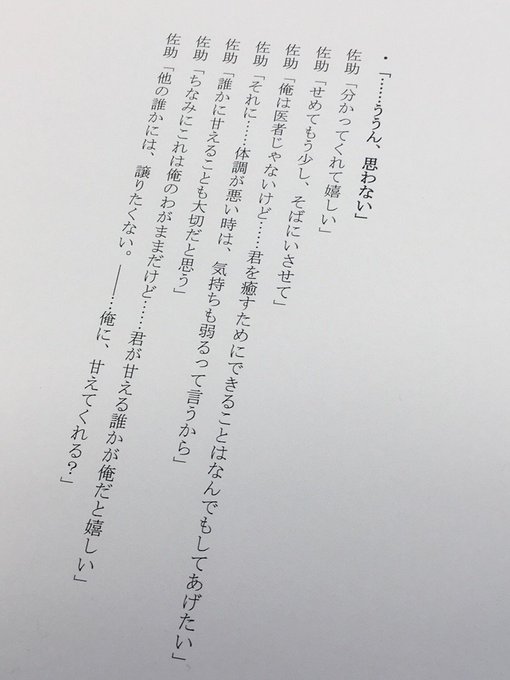 ・「……ううん、思わない」
佐助「分かってくれて嬉しい」
佐助「せめてもう少し、そばにいさせて」
佐助「俺は医者じゃないけど……君を癒すためにできることはなんでもしてあげたい」
佐助「それに……体調が悪い時は、気持ちも弱るって言うから」
佐助「誰かに甘えることも大切だと思う」
佐助「ちなみにこれは俺のわがままだけど……君が甘える誰かが俺だと嬉しい」
佐助「他の誰かには、譲りたくない。――…俺に、甘えてくれる?」